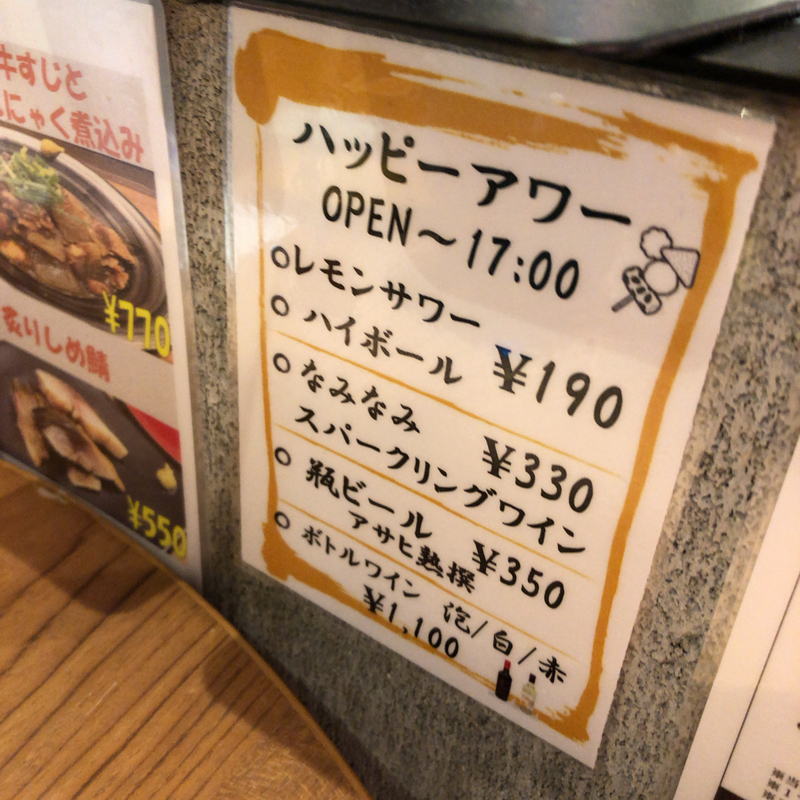 牛すじと
にゃく煮込み
¥770
炙りしめ鯖
¥550
ハッピーアワー
OPEN～17:00
○レモンサワー
○ハイボール ¥190
○なみなみ
スパークリングワイン ¥330
○瓶ビール
アサヒ熟撰 ¥350
○ボトルワイン 泡/白/赤
¥1,100